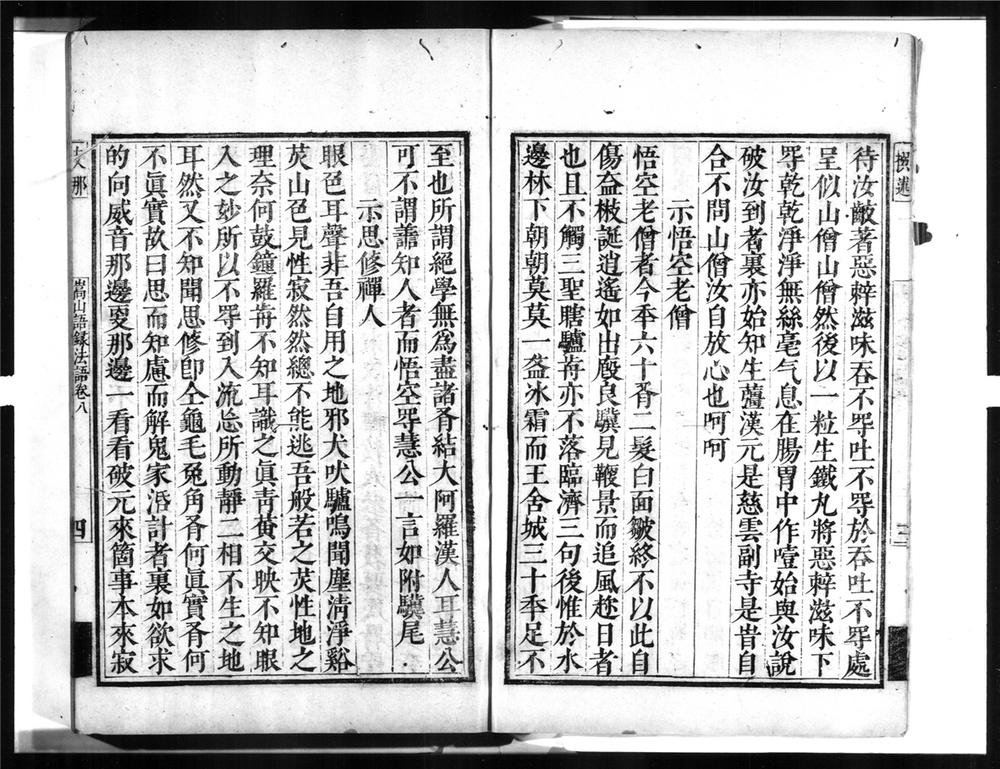 待汝齩著惡辢滋味吞不㝵吐不㝵於吞吐不㝵處
呈似山僧山僧然後以一粒生鐵丸將惡辢滋味下
㝵乾乾淨淨無絲毫气息在腸胃中作噎始與汝說
破汝到者裏亦始知生薑漢元是慈雲副寺是昔自
合不問山僧汝自放心也呵呵
示悟空老僧
悟空老僧者今秊六十𠕅二髮白面皺終不以此自
傷益椒誕逍遙如出廄良驥見鞭景而追風趂日者
也且不觸三聖瞎驢歬亦不落臨濟三句後惟於水
邊林下朝朝莫莫一盋冰霜而王舍城三十秊足不
至也所謂絕學無爲盡諸𠕅結大阿羅漢人耳慧公
可不謂譱知人者而悟空㝵慧公一言如附驥尾
示思修禪人
眼色耳聲非吾自用之地邪犬吠驢鳴聞塵清淨谿
芺山色見性寂然然總不能逃吾般若之芺性地之
理奈何鼓鐘羅歬不知耳識之眞靑黃交映不知眼
入之妙所以不㝵到入流忘所動靜二相不生之地
耳然又不知聞思修卽仝龜毛兔角𠕅何眞實𠕅何
不眞實故曰思而知慮而解鬼家活計者裏如欲求
的向威音那邊更那邊一看看破元來箇事本來寂
嵩山語錄法語卷八
四
三